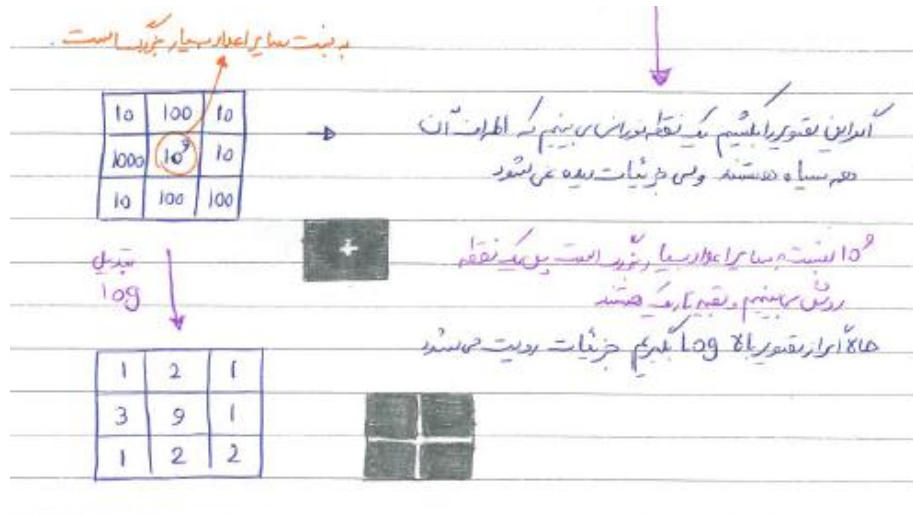 به نسبت سایر اعداد بسیار بزرگ است.
10 100 10
1000 10⁹ 10
10 100 100
اگر این تصویر را بکشیم یک نقطه نورانی می بینیم که اطراف آن
همه سیاه هستند و این جزئیات دیده نمی شود
10⁹ نسبت به سایر اعداد بسیار بزرگ است پس یک نقطه
روشن می بینیم و بقیه تاریک هستند
تبدیل
log
حالا اگر از تصویر بالا Log بگیریم جزئیات رویت می شود
1 2 1
3 9 1
1 2 2